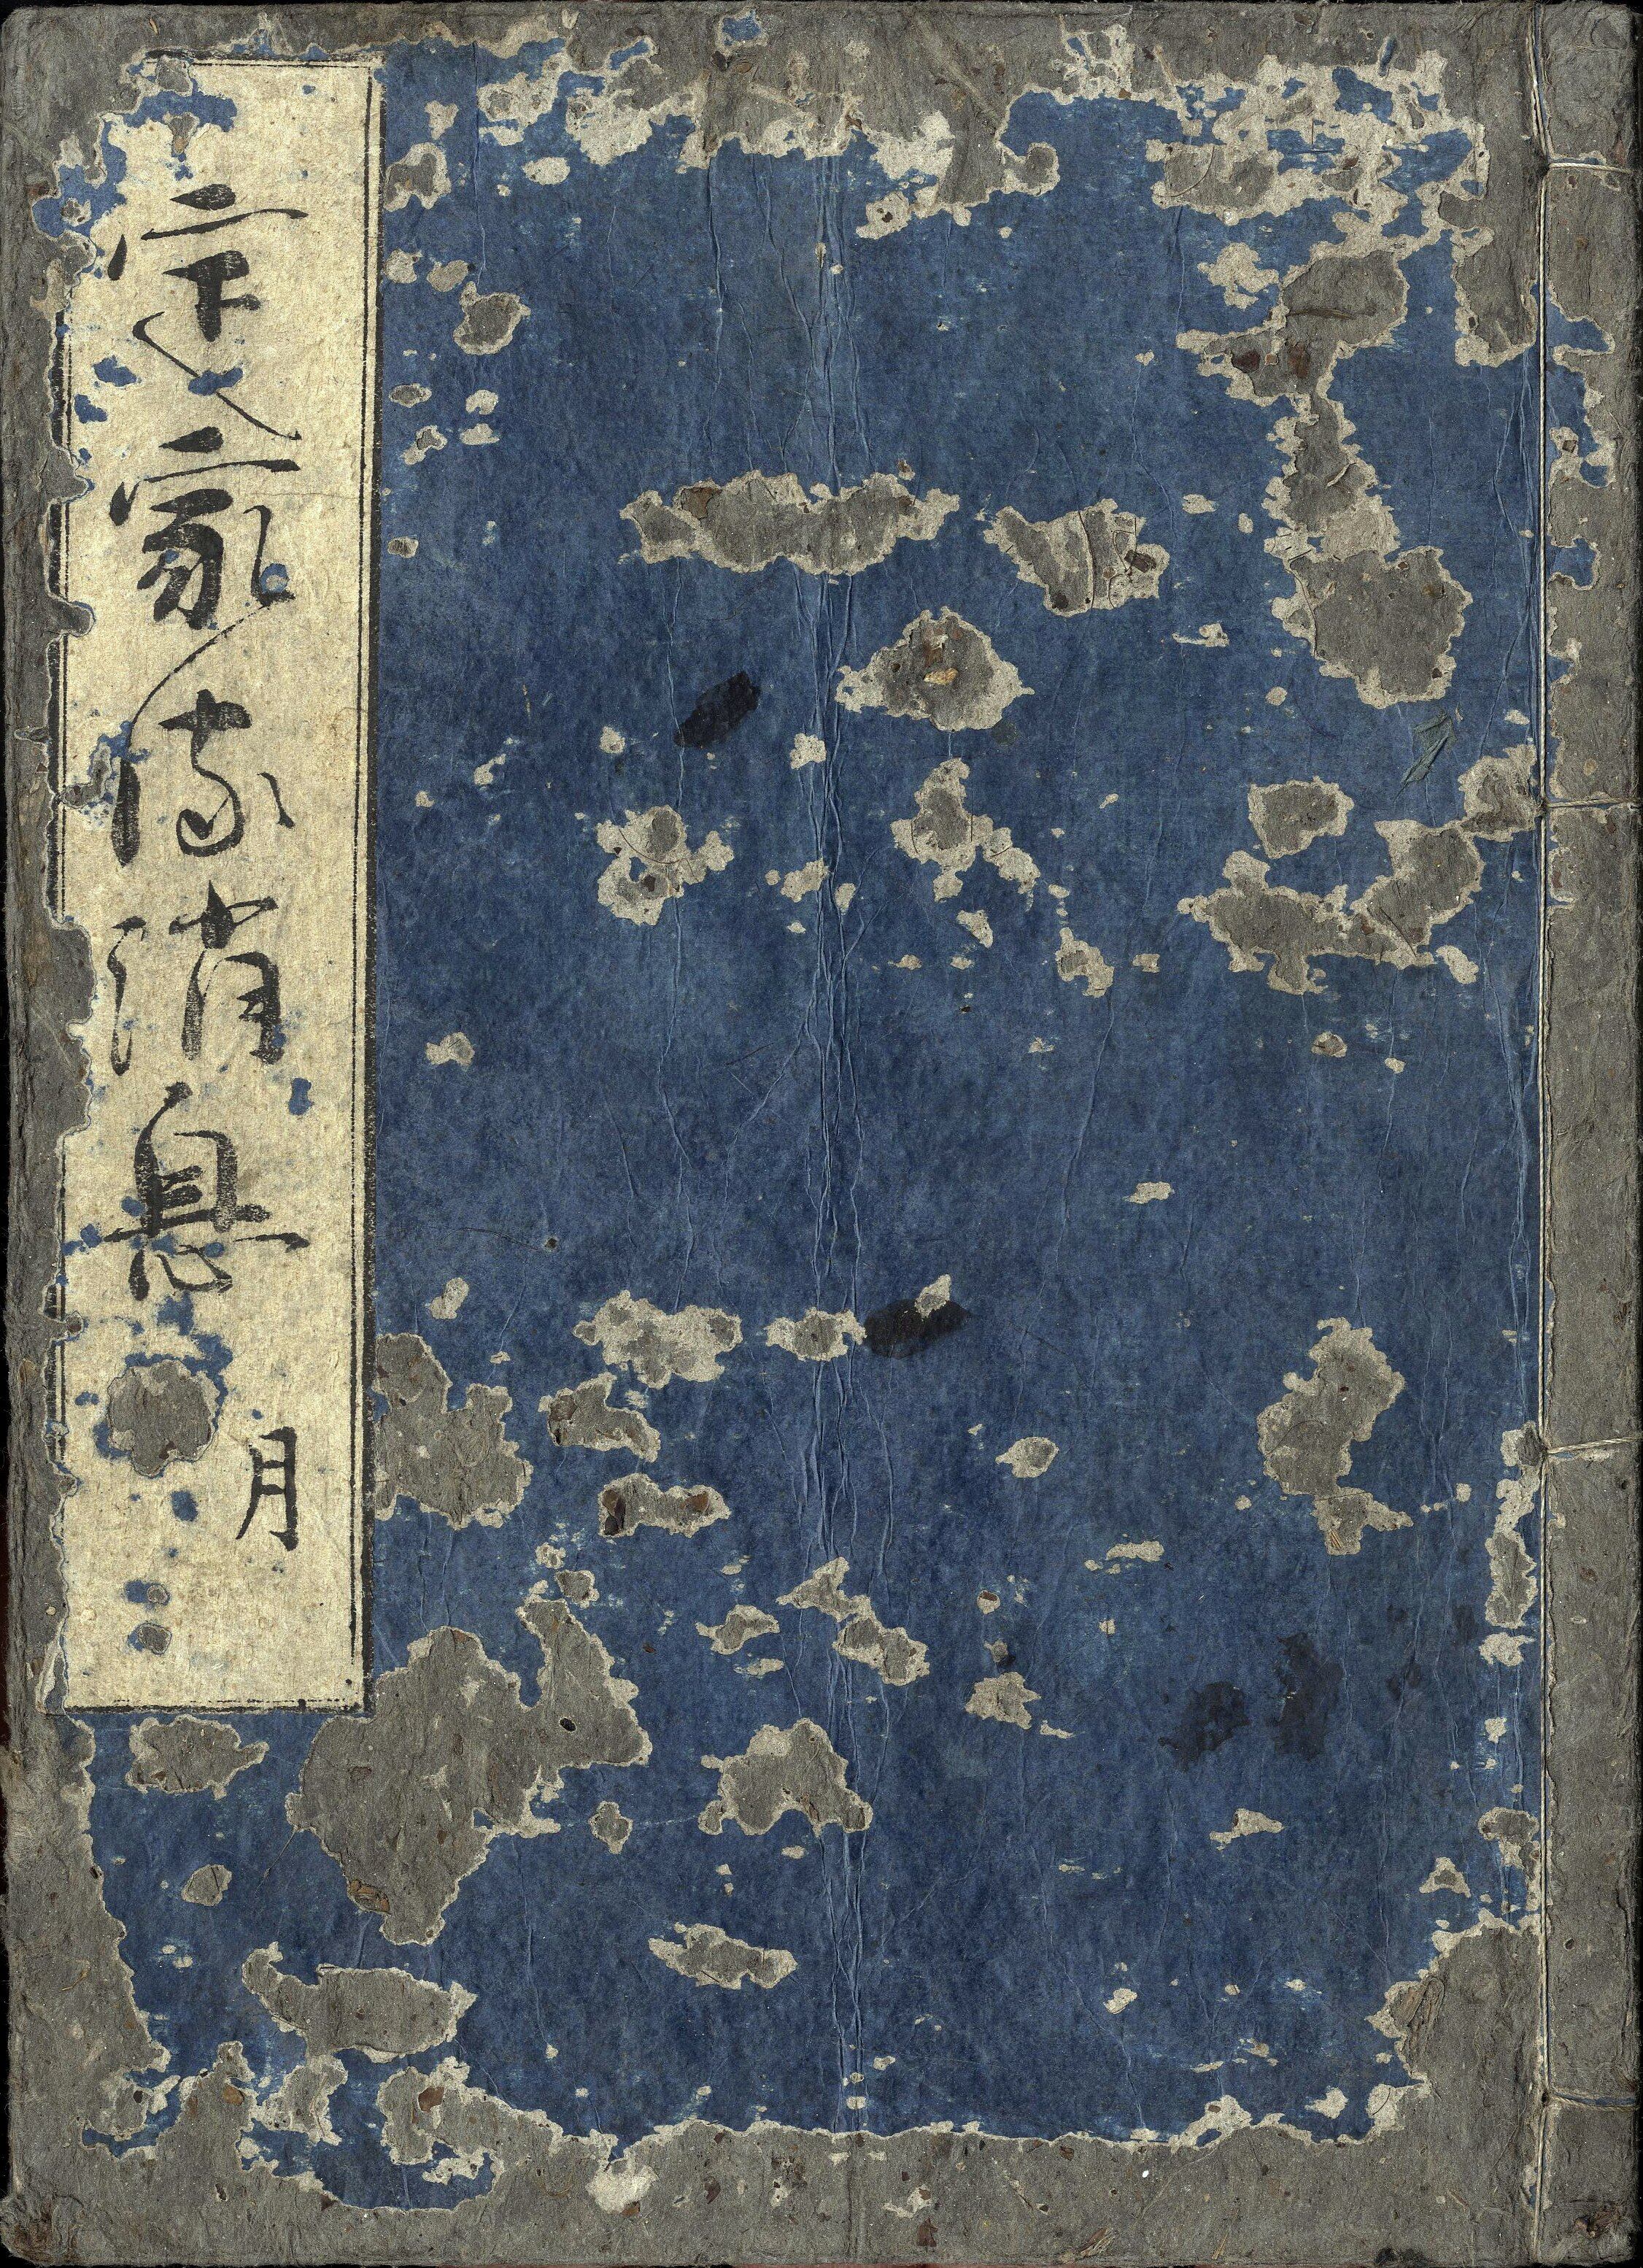 定家流消息
月